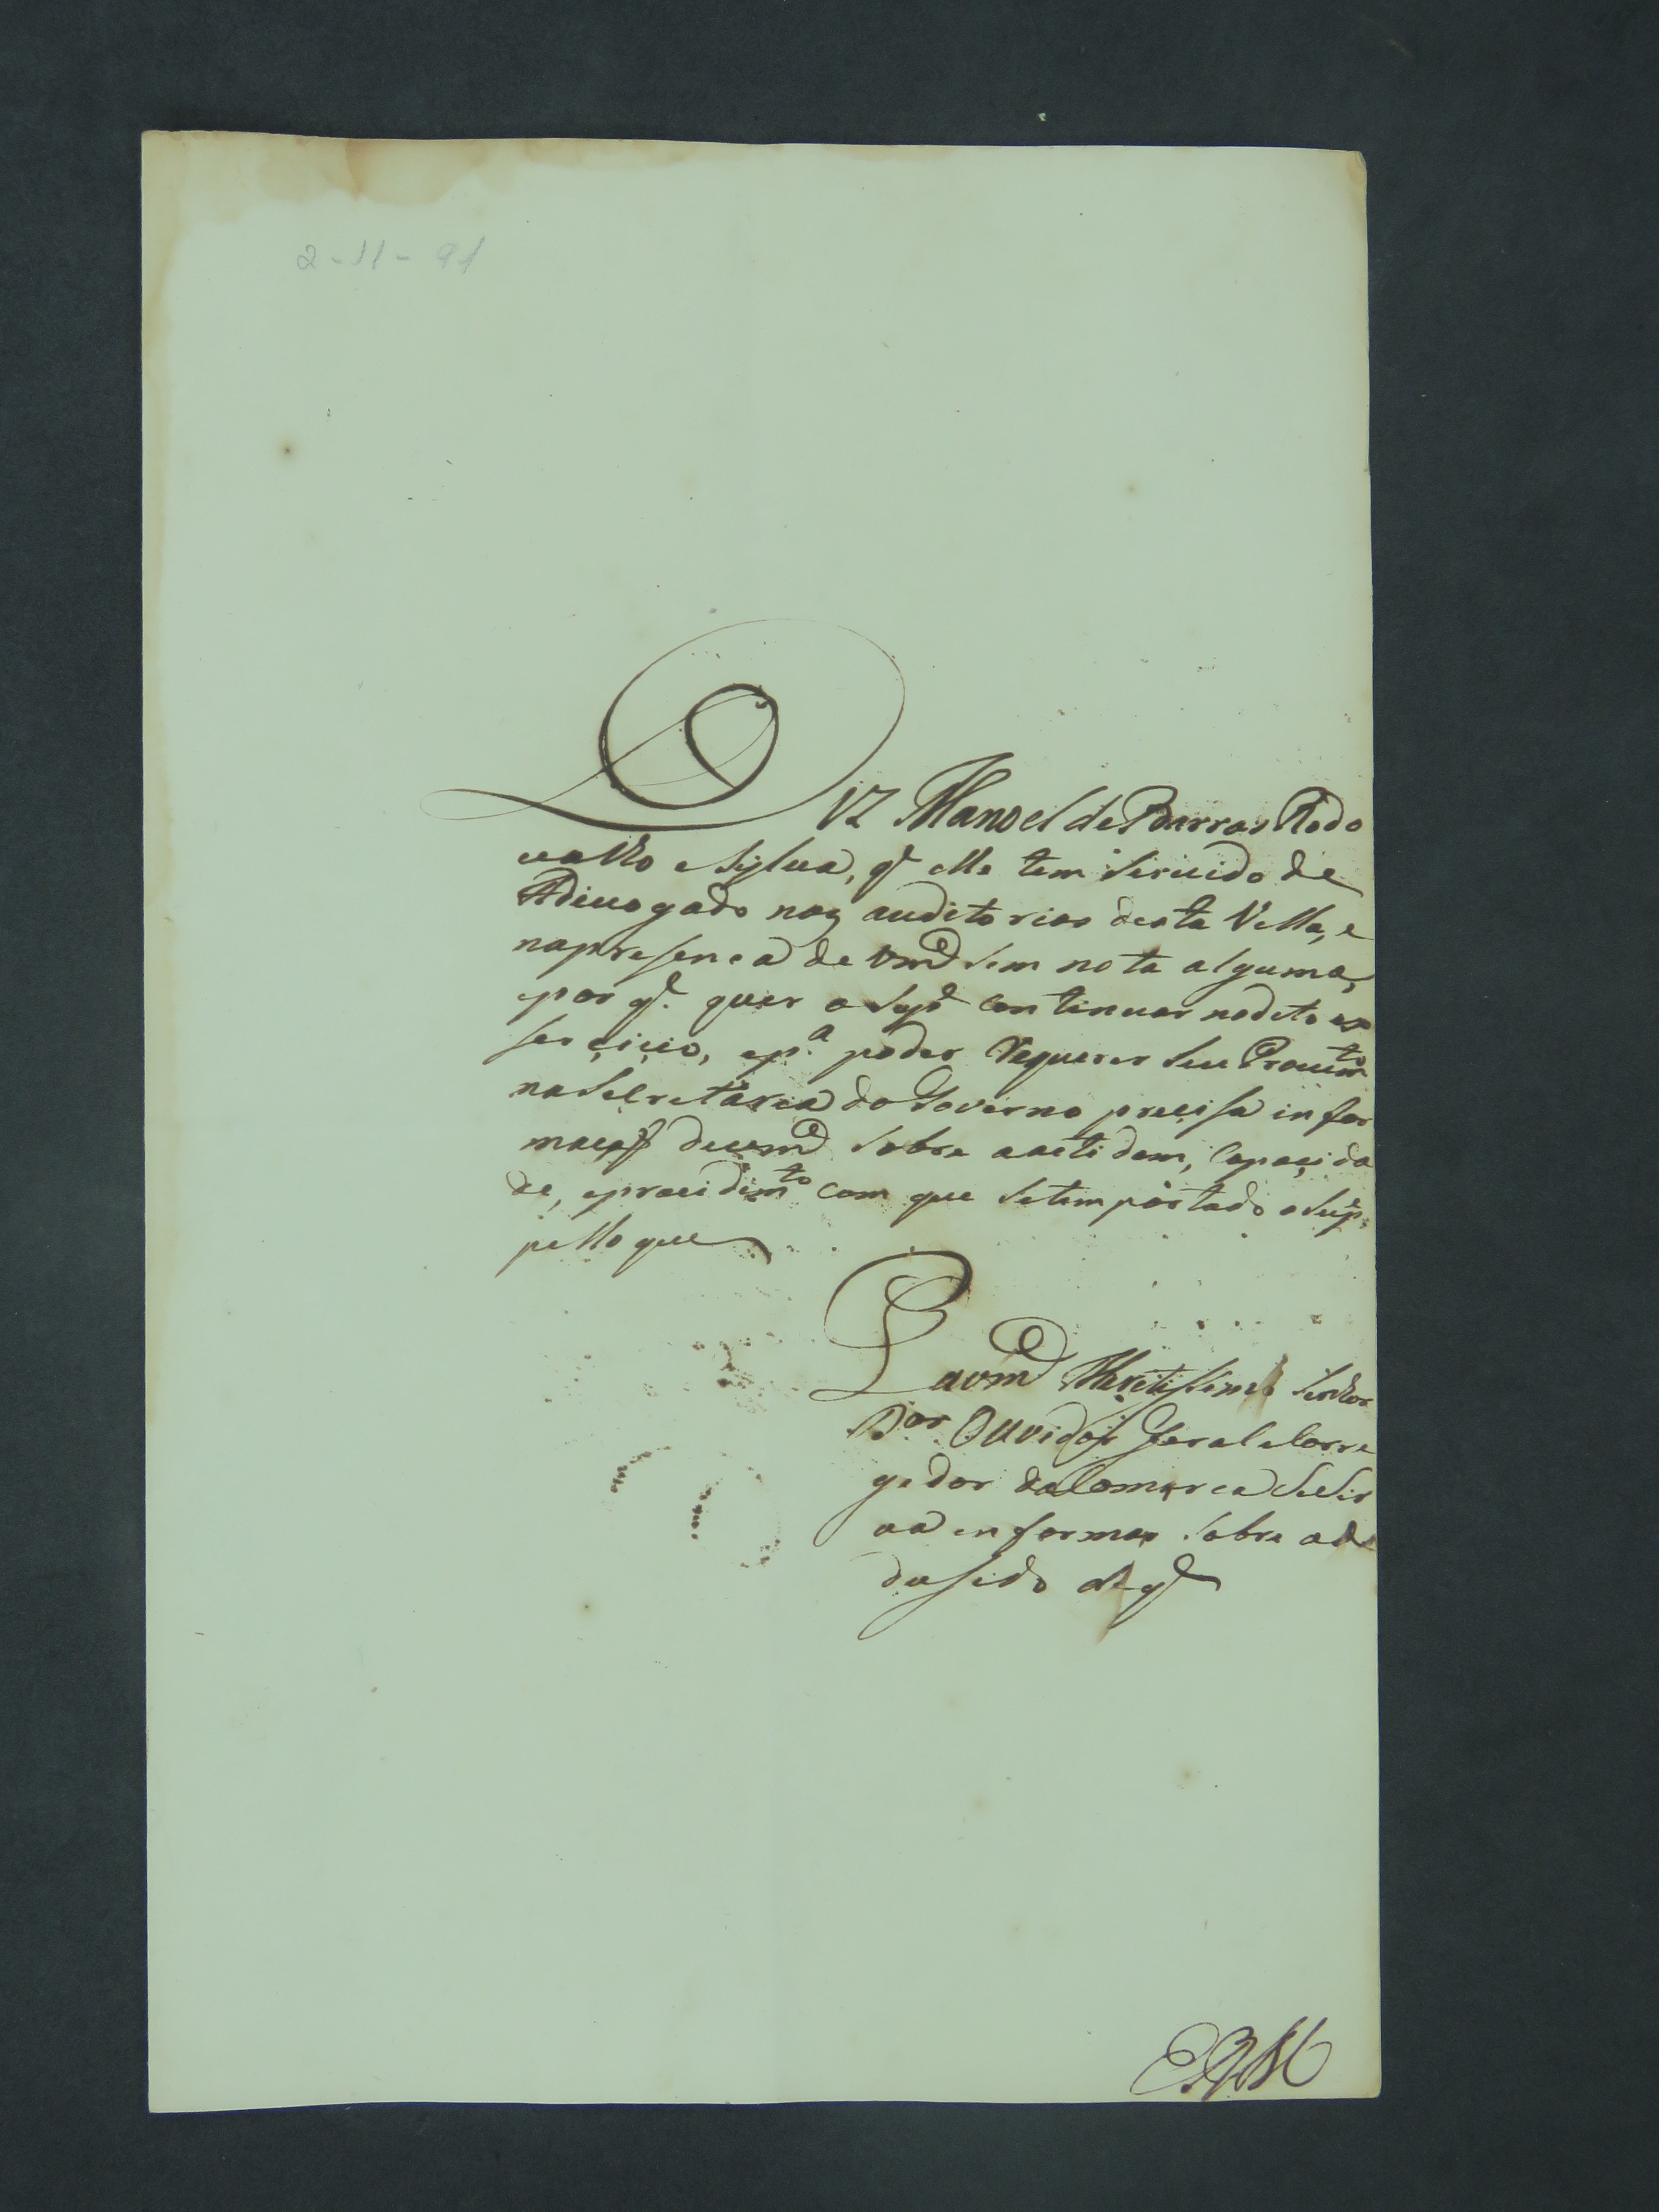 2-11-91
Diz Manoel de Barros Rodo
valho e Sylva, q.e elle tem servido de
Advogado nos auditorios desta Villa, e
na presença de Vm.ce sem nota alguma,
e por q.e quer o Sup.e continuar no dito ex
sercicio, e p.a poder Requerer seu Provim.to
na Secretaria do Governo precisa infor
mação de vm.ce sobre a actidam, Capacida
de, e procidim.to com que se tem portado o Sup.e
pello que
P a vm.ce Meritissimo Senhor
D.or Ouvidor Geral e Corre
gedor da Comarca Se Sir
va informar sobre o de
dusido de q.e
E R M